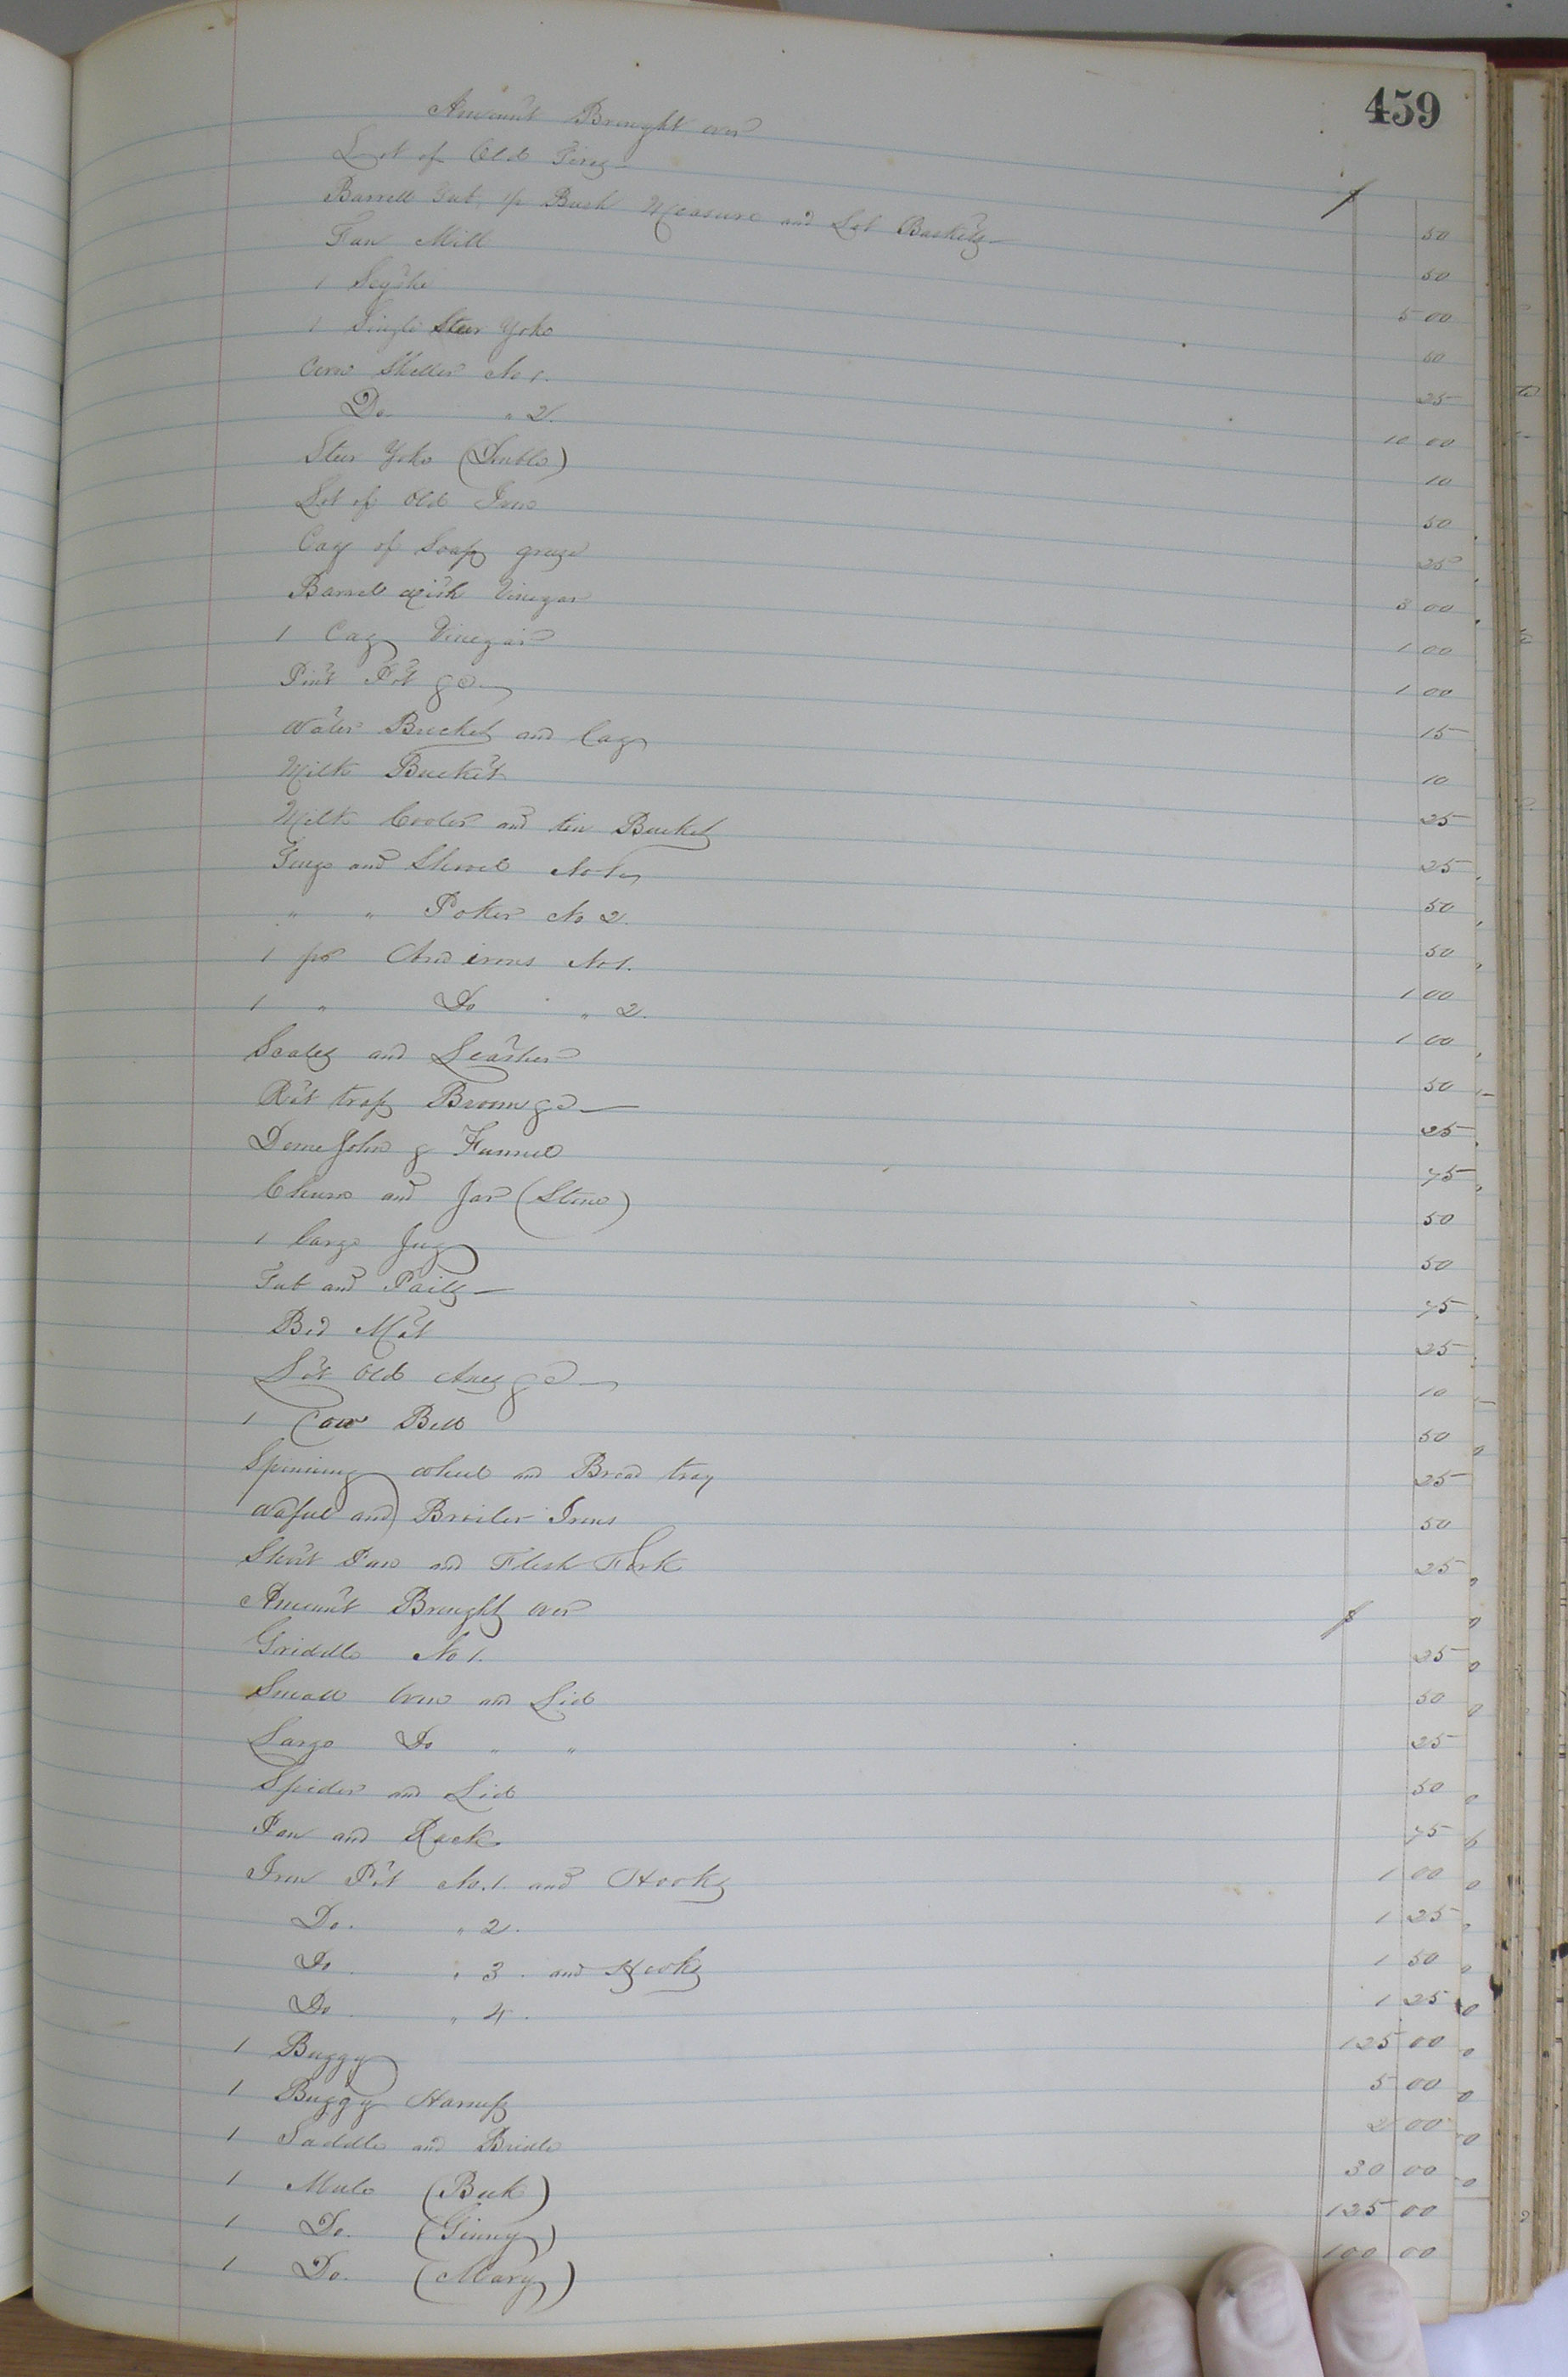 459
Amount Brought over $
Lot of Old Tires 50
Barrell Tub, 1/2 Bush Measure and Lot Baskets 50
Fan Mill 5 00
1 Scythe 50
1 Single Steer Yoke 25
Corn Sheller No 1. 10 00
Do " 2. 10
Steer Yoke (Double) 50
Lot of Old Iron 25
Cag of Soap greese 3 00
Barrell with Vinegar 1 00
1 Cag Vinegar 1 00
Pint Pot &c 15
Water Bucket and Cag 10
Milk Bucket 25
Milk Cooler and tin Bucket 25
Tongs and Shovel No 1 50
" " Poker No 2. 50
1 pr And irons No 1. 1 00
1 " Do " 2. 1 00
Scales and Leather 50
Rat trap Broom &c 25
Deme John & Funnel 75
Churn and Jar (Stone) 50
1 large Jug 50
Tub and Pails 75
Bed Mat 25
Lot Old Axes &c 10
1 Cow Bell 50
Spinning wheel and Bread tray 25
Waful and Broiler Irons 50
Pan and Flesh Fork 25
Amount Brought over $
Griddle No 1. 25
Small Oven and Lid 50
Large Do " " 25
Spider and Lid 50
Pan and Rack 75
Iron Pot No. 1. and Hooks 1 00
Do. " 2. 1 25
Do. " 3. and Hooks 1 50
Do " 4. 1 25
1 Buggy 125 00
1 Buggy Harness 5 00
1 Saddle and Bridle 2 00
1 Mule (Buck) 30 00
1 Do. (Ginny) 125 00
1 Do. (Mary) 100 00